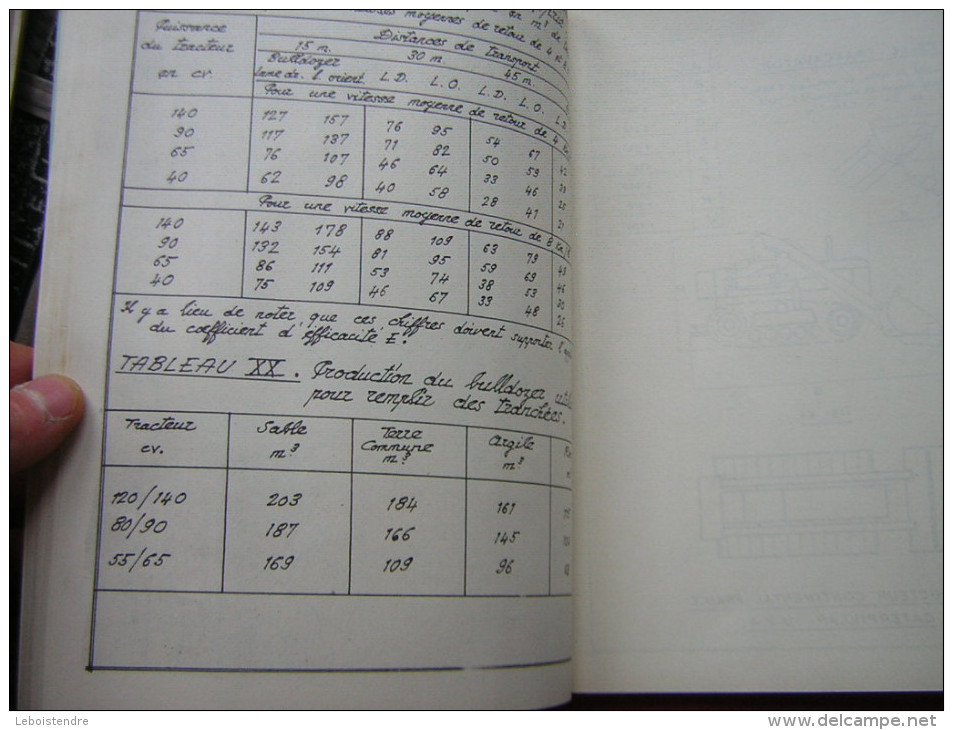 moyennes de retour de 4 et 8
Puissance
du tracteur
en cv.
Distances de transport
15 m. 30 m. 45 m.
Bulldozer
lame dr. l. orient L.D. L.O. L.D. L.O. L.D.
Pour une vitesse moyenne de retour de 4 Km
140 127 157 76 95 54 67 42
90 117 137 71 82 50 59
65 76 107 46 64 33 46
40 62 98 40 58 28 41
Pour une vitesse moyenne de retour de 8 Km/h
140 143 178 88 109 63 79
90 132 154 81 95 59 69
65 86 111 53 74 38 53
40 75 109 46 67 33 48
Il y a lieu de noter que ces chiffres doivent supporter
du coefficient d'éfficacité E.
TABLEAU XX. Production du bulldozer
pour remplir des tranchées.
Tracteur Sable Terre Argile
cv. m³ Commune m³
m³
120/140 203 184 161
80/90 187 166 145
55/65 169 109 96
Leboistendre
www.delcampe.net